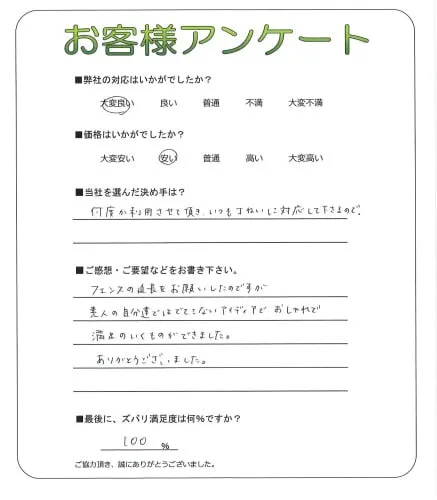 お客様アンケート
■弊社の対応はいかがでしたか？
大変良い 良い 普通 不満 大変不満
■価格はいかがでしたか？
大変安い 安い 普通 高い 大変高い
■当社を選んだ決め手は？
何度か利用させて頂き、いつも丁ねいに対応して下さるので。
■ご感想・ご要望などをお書き下さい。
フェンスの延長をお願いしたのですが
素人の自分達ではでてこないアイディアで おしゃれで
満足のいくものができました。
ありがとうございました。
■最後に、ズバリ満足度は何％ですか？
100 %
ご協力頂き、誠にありがとうございました。